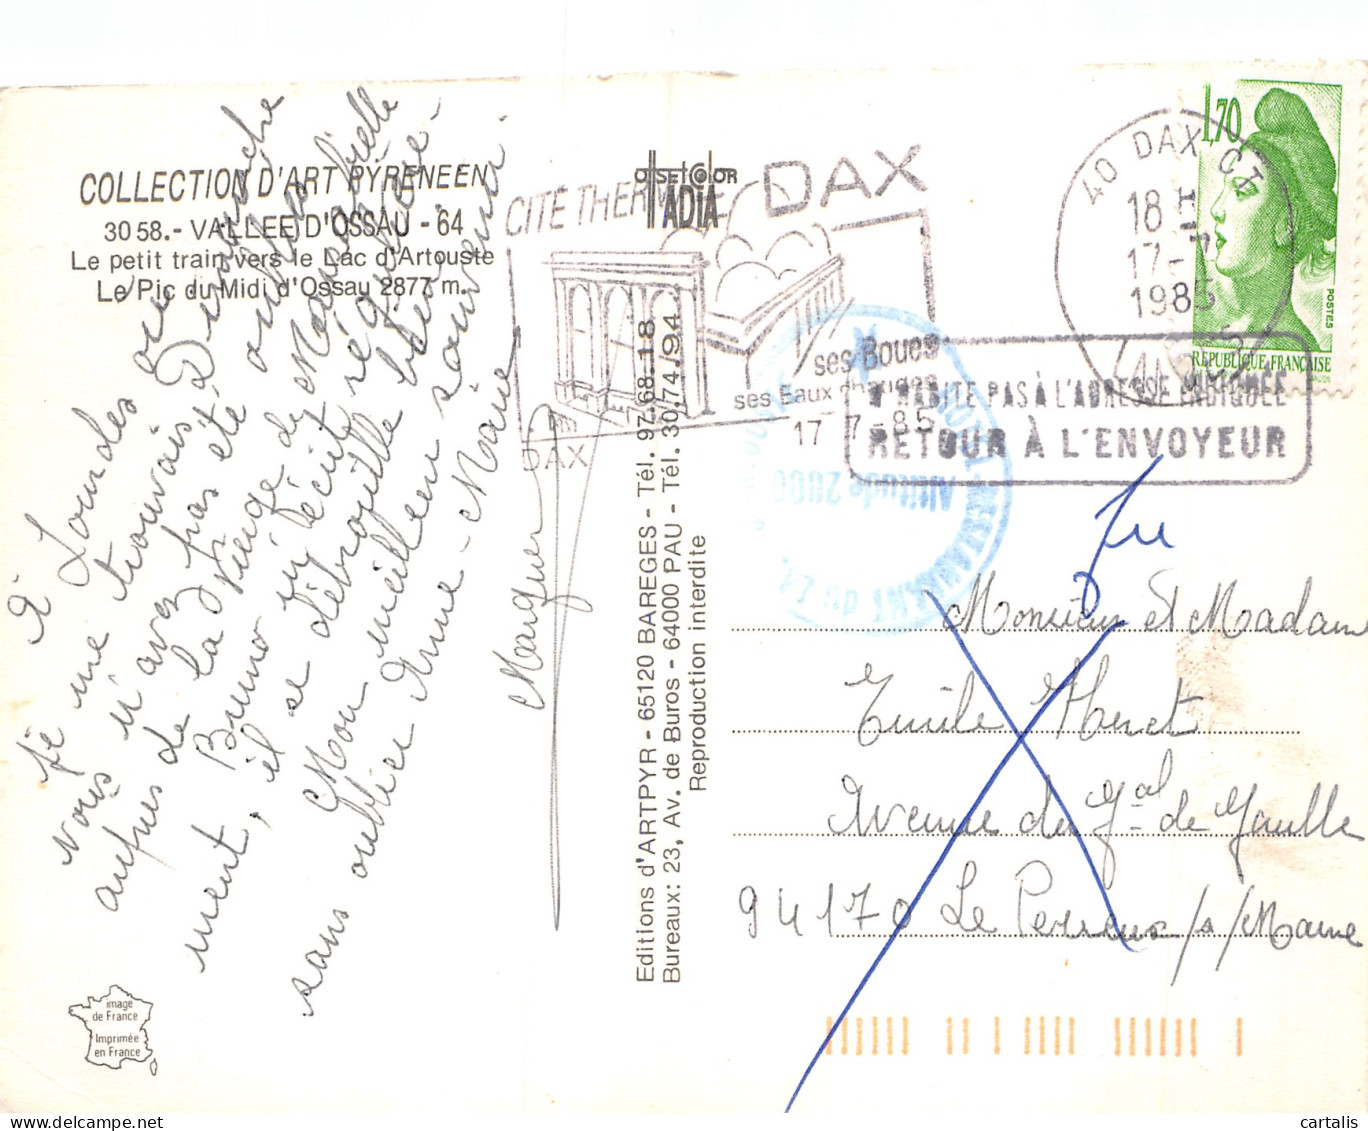 COLLECTION D'ART PYRENEEN
3058.- VALLEE D'OSSAU - 64
Le petit train vers le Lac d'Artouste
Le Pic du Midi d'Ossau 2877 m.
À Lourdes où
je me trouvais Dimanche
vous n'avez pas été oubliés
auprès de la Vierge de Massabielle
Bruno m'écrit régulière-
ment, il se débrouille bien.
Mon meilleur souvenir.
sans oublier Anne-Marie
Editions d'ARTPYR - 65120 BAREGES - Tél. 97.68.18
Bureaux: 23, Av. de Buros - 64000 PAU - Tél. 30.74.94
Reproduction interdite
OFFSET COLOR
ADIA
CITE THERMALE DAX
ses Boues
ses Eaux chaudes
DAX
17 7-85
40 DAX CT
18 H
17-7
1985
LANDES
1,70
POSTES
REPUBLIQUE FRANÇAISE
N'HABITE PAS À L'ADRESSE INDIQUÉE
RETOUR À L'ENVOYEUR
Altitude 2000
RESTAURANT DU
Monsieur et Madame
Emile
Avenue du Gal de Gaulle
94170 Le Perreux s/Marne
image
de France
Imprimée
en France
cartalis